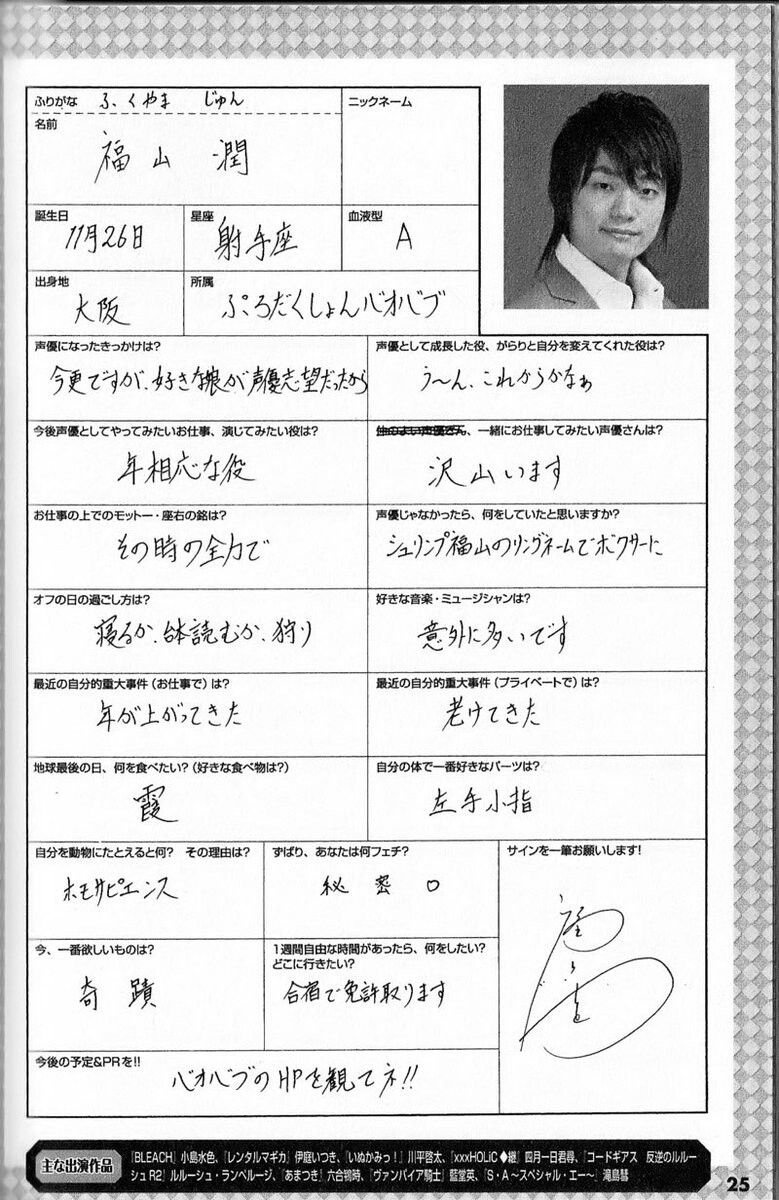 ふりがな ふくやま じゅん
ニックネーム
名前
福山 潤
誕生日
11月26日
星座
射手座
血液型
A
出身地
大阪
所属
ぷろだくしょんバオバブ
声優になったきっかけは?
今更ですが、好きな娘が声優志望だったから
声優として成長した役、がらりと自分を変えてくれた役は?
う〜ん、これからかなぁ
今後声優としてやってみたいお仕事、演じてみたい役は?
年相応な役
仲のよい声優さん、一緒にお仕事してみたい声優さんは?
沢山います
お仕事の上でのモットー・座右の銘は?
その時の全力で
声優じゃなかったら、何をしていたと思いますか?
シュリンプ福山のリングネームでボクサーに
オフの日の過ごし方は?
寝るか、台本読むか、狩り
好きな音楽・ミュージシャンは?
意外に多いです
最近の自分的重大事件(お仕事で)は?
年が上がってきた
最近の自分的重大事件(プライベートで)は?
老けてきた
地球最後の日、何を食べたい?(好きな食べ物は?)
霞
自分の体で一番好きなパーツは?
左手小指
自分を動物にたとえると何? その理由は?
ホモサピエンス
ずばり、あなたは何フェチ?
秘密○
サインを一筆お願いします!
今、一番欲しいものは?
奇蹟
1週間自由な時間があったら、何をしたい?
どこに行きたい?
合宿で免許取ります
今後の予定&PRを!!
バオバブのHPを観てネ!!
主な出演作品
『BLEACH』小島水色、『レンタルマギカ』伊庭いつき、『いぬかみっ!』川平啓太、『xxxHOLiC◆継』四月一日君尋、『コードギアス 反逆のルルー
シュR2』ルルーシュ・ランペルージ、『あまつき』六合鴇時、『ヴァンパイア騎士』藍堂英、『S・A〜スペシャル・エー〜』滝島彗
25